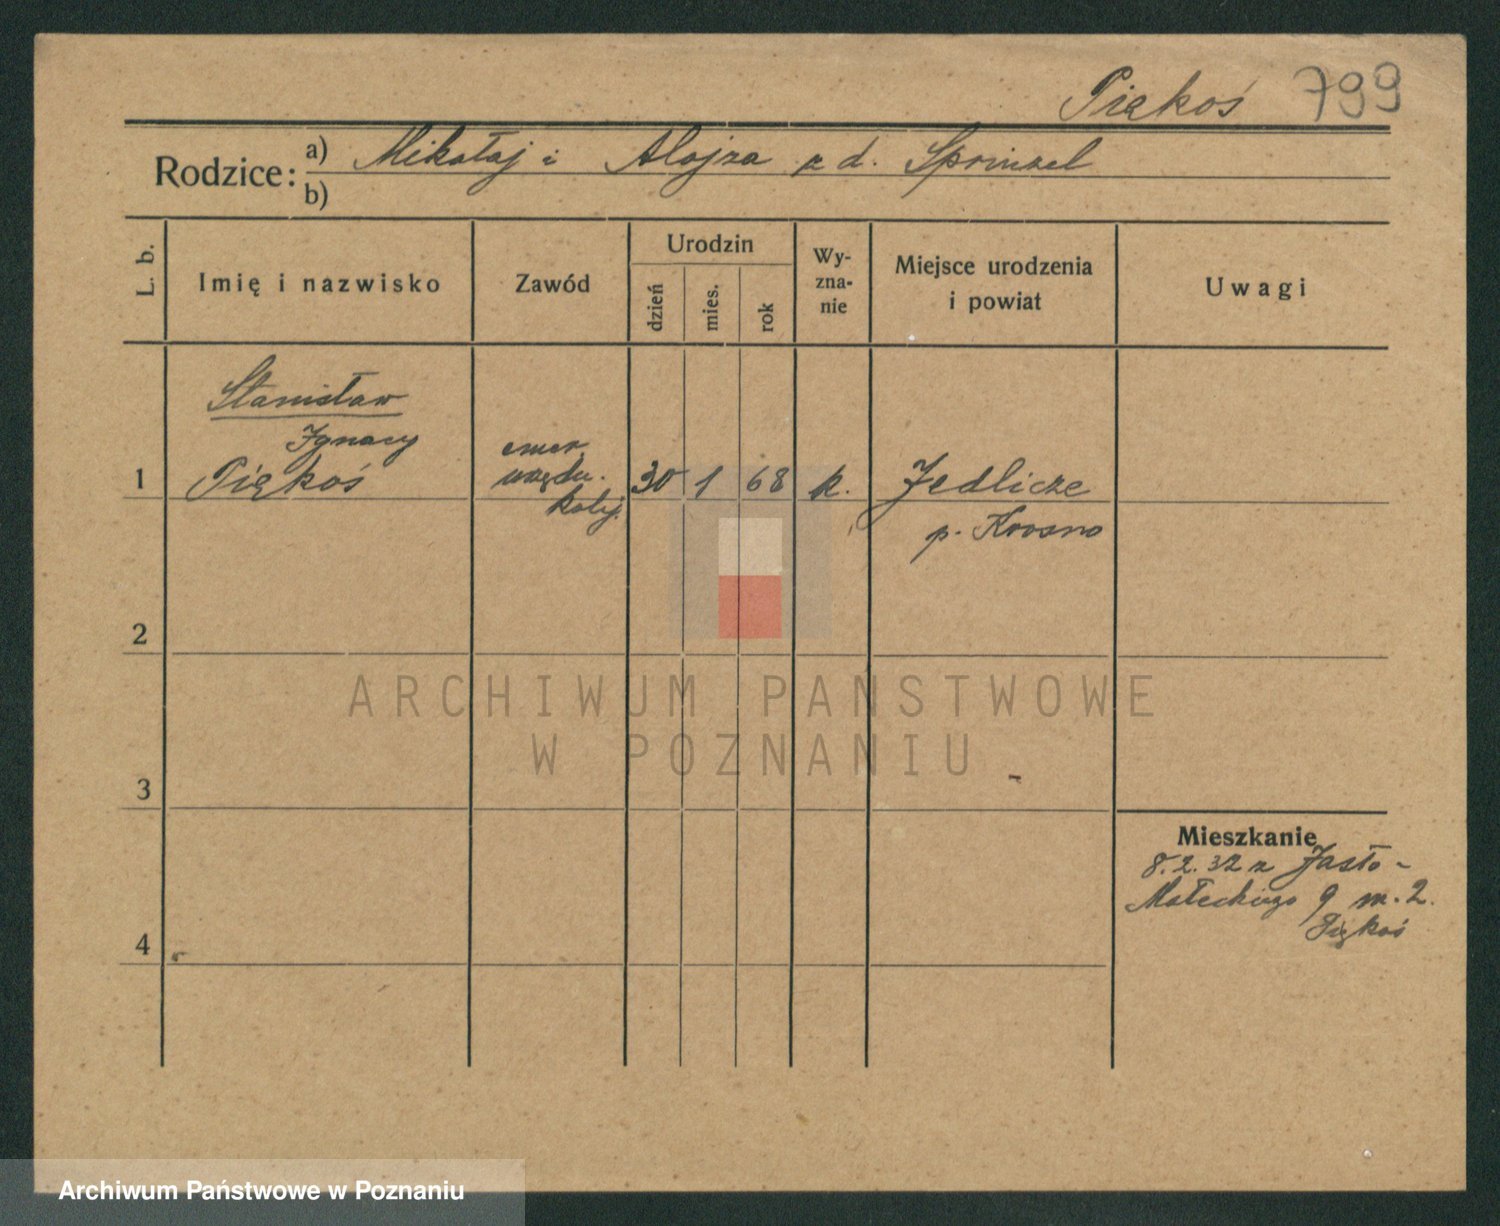 Piękoś 799
Rodzice: a) Mikołaj i Alojza z d. Sprinzel
b)
L. b.
Imię i nazwisko
Zawód
Urodzin
dzień
mies.
rok
Wy-
zna-
nie
Miejsce urodzenia
i powiat
Uwagi
Stanisław
Ignacy
1 Piękoś
emer.
urzędn.
kolej.
30 1 68 k.
Jedlicze
p. Krosno
2
3
4
Mieszkanie
8.2.32 z Jasło-
Małeckiego 9 m. 2.
Piękoś
ARCHIWUM PAŃSTWOWE
W POZNANIU
Archiwum Państwowe w Poznaniu